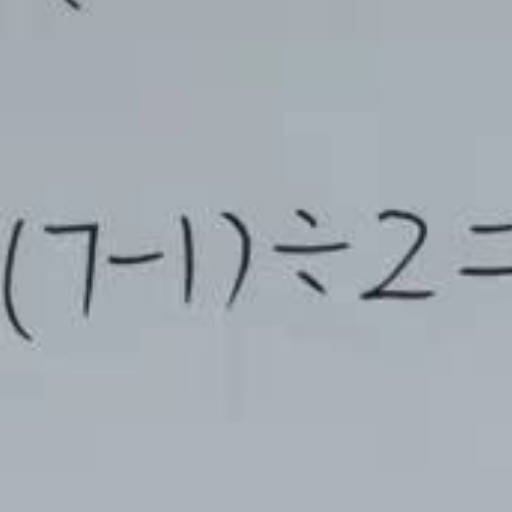 (7-1)÷2=